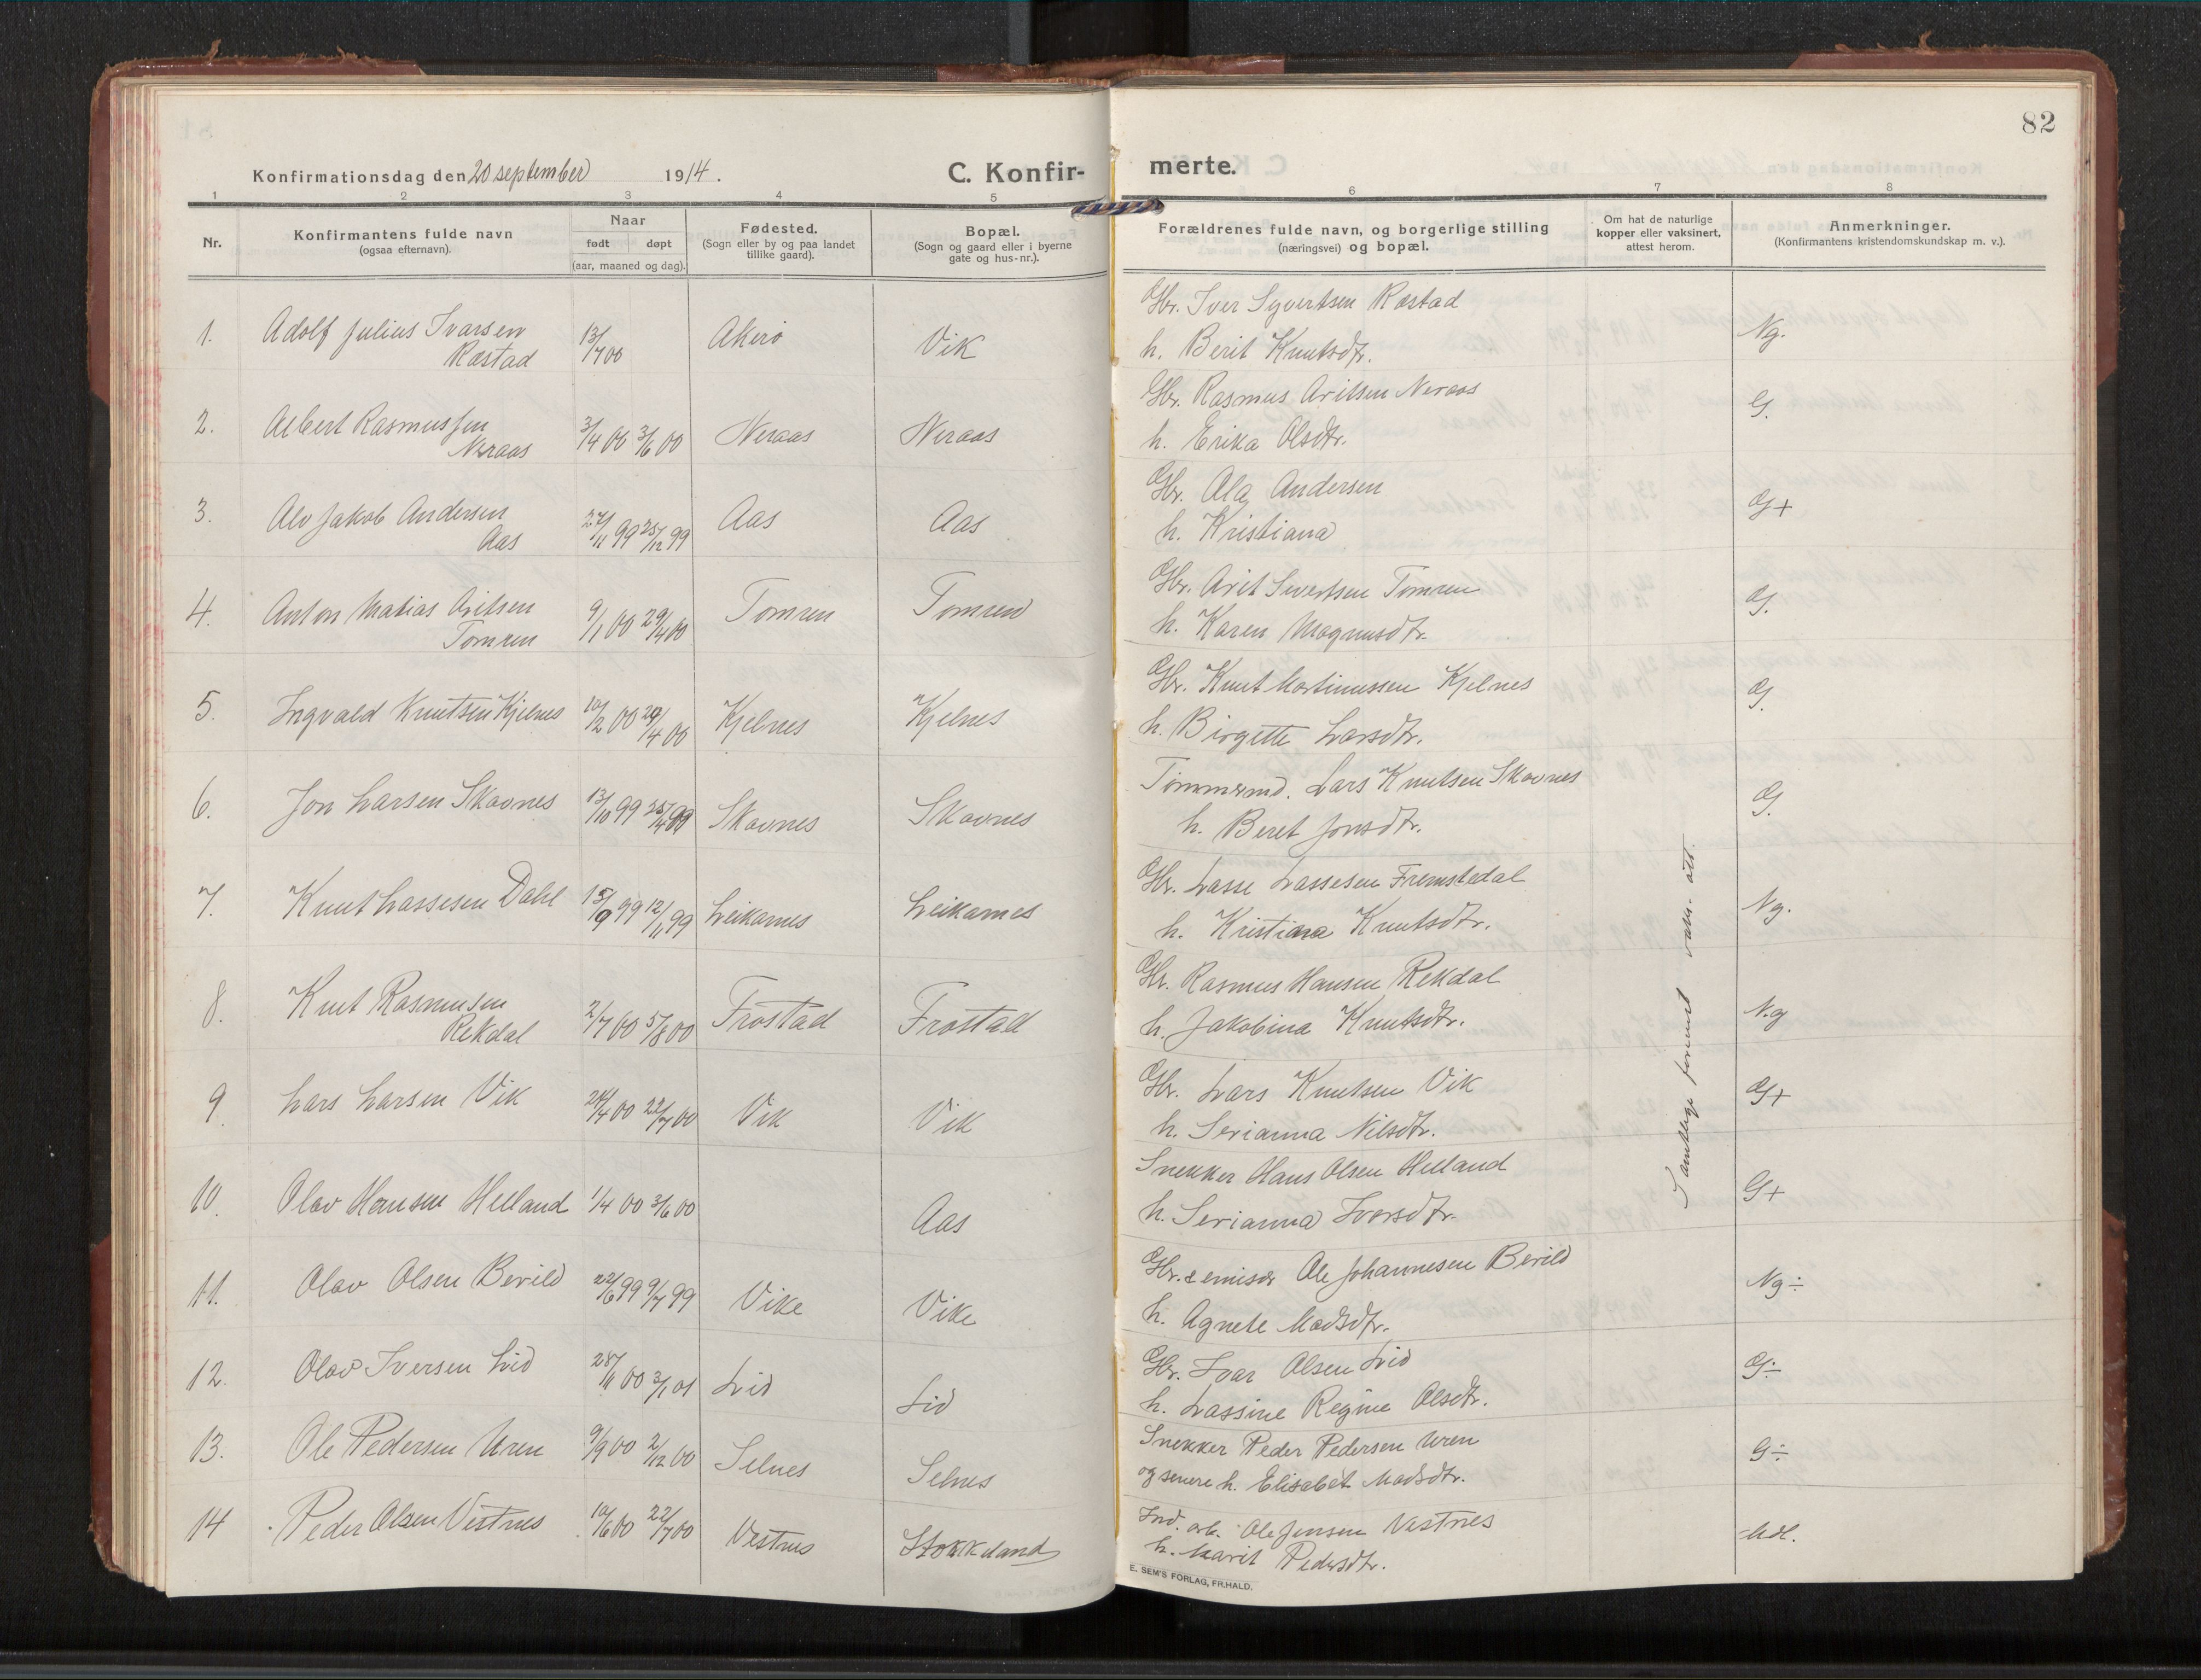 82
Konfirmationsdag den 20 september 1914.
C. Konfir-
merte.
1 2 3 4 5 6 7 8
Nr.
Konfirmantens fulde navn
(ogsaa efternavn).
Naar
født døpt
(aar, maaned og dag).
Fødested.
(Sogn eller by og paa landet
tillike gaard).
Bopæl.
(Sogn og gaard eller i byerne
gate og hus-nr.).
Forældrenes fulde navn, og borgerlige stilling
(næringsvei) og bopæl.
Om hat de naturlige
kopper eller vaksinert,
attest herom.
Anmerkninger.
(Konfirmantens kristendomskundskap m. v.).
1. Adolf Julius Ivarsen
Rastad
13/7 00 Akerø Vik
Gbr. Iver Syvertsen Rastad
h. Berit Knutsdtr.
Ng.
2. Albert Rasmussen
Neraas
3/4 00 3/6 00 Neraas Neraas
Gbr. Rasmus Aritsen Neraas
h. Erika Olsdtr.
G.
3. Alv Jakob Andersen
Aas
27/11 99 25/12 99 Aas Aas
Gbr. Ala Andersen
h. Kristiana
G+
4. Anton Matias Aritsen
Tomren
9/1 00 29/4 00 Tomren Tomren
Gbr. Arit Sivertsen Tomren
h. Karen Magnusdtr.
G.
5. Ingvald Knutsen Kjelnes
10/2 00 29/4 00 Kjelnes Kjelnes
Gbr. Knut Martinussen Kjelnes
h. Birgette Larsdtr.
G.
6. Jon Larsen Skavnes
13/10 99 Skavnes Skavnes
Tømmermd. Lars Knutsen Skavnes
h. Beret Jonsdtr.
G.
7. Knut Lassesen Dahl
15/9 99 12/11 99 Leikarnes Leikarnes
Gbr. Lasse Lassesen Fremstedal
h. Kristiana Knutsdtr.
Ng.
8. Knut Rasmussen
Rekdal
2/7 00 5/8 00 Frostad Frostad
Gbr. Rasmus Hansen Rekdal
h. Jakobina Knutsdtr.
N.g
9. Lars Larsen Vik
24/4 00 22/7 00 Vik Vik
Gbr. Lars Knutsen Vik
h. Serianna Nilsdtr.
G+
10. Olav Hansen Helland
1/4 00 3/6 00 Aas
Snekker Hans Olsen Helland
h. Serianna Iversdtr.
G+
11. Olav Olsen Berild
22/6 99 9/7 99 Vike Vike
Gbr. & emisær Ole Johannesen Berild
h. Agnete Madsdtr.
Ng÷
12. Olav Iversen Lid
28/11 00 3/1 01 Lid Lid
Gbr. Ivar Olsen Lid
h. Lassine Regine Olsdtr.
G÷
13. Ole Pedersen Uren
9/9 00 2/12 00 Selnes Selnes
Snekker Peder Pedersen Uren
og senere h. Elisabet Madsdtr.
G÷
14 Peder Olsen Vestnes
10/6 00 22/7 00 Vestnes Stokkeland
Ind. arb. Ole Jensen Vestnes
h. Marit Pedersdtr.
Mdl.
Samtlige forevist vaks. att.
E. SEM'S FORLAG, FR.HALD.